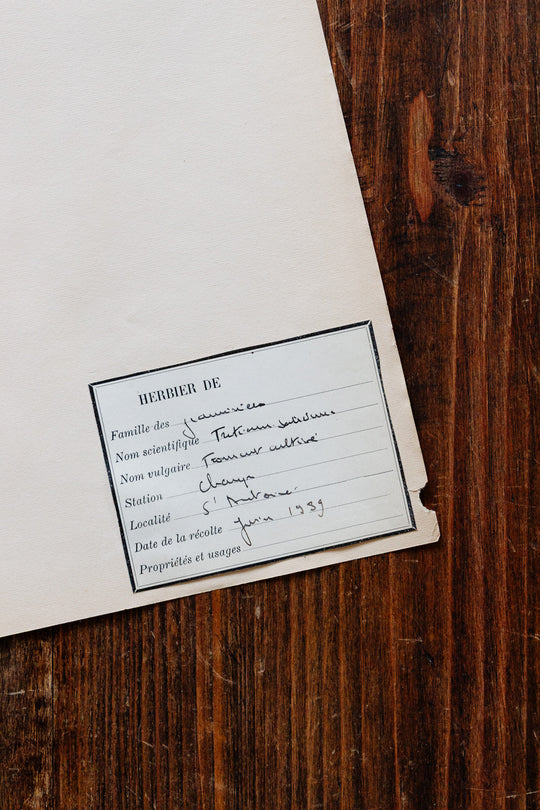 HERBIER DE
Famille des graminées
Nom scientifique Triticum
Nom vulgaire Froment cultivé
Station champ
Localité St Antoine
Date de la récolte juin 1939
Propriétés et usages